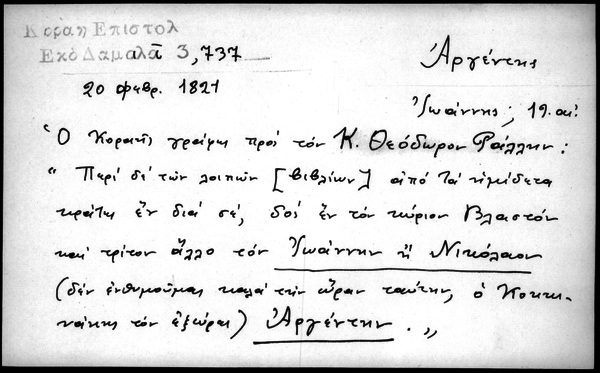 Κοραη Επιστολ
Εκδ Δαμαλᾶ 3,737
20 φεβρ. 1821
Ἀργέντης
Ἰωάννης; 19. αἰ.
Ὁ Κοραῆς γράφει πρὸς τὸν Κ. Θεόδωρον Ράλλην:
"Περὶ δὲ τῶν λοιπῶν [βιβλίων] ἀπὸ τὰ ἡμίδετα
κράτει ἓν διὰ σέ, δὸς ἓν τὸν κύριον Βλαστὸν
καὶ τρίτον ἄλλο τὸν Ἰωάννην ἢ Νικόλαον
(δὲν ἐνθυμοῦμαι καλὰ τὴν ὥραν ταύτην, ὁ Κοκκι-
νάκης τὸν ἐξεύρει) Ἀργέντην."